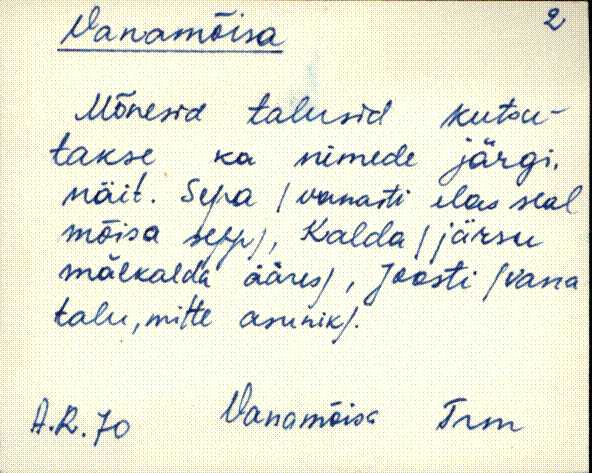 Vanamõisa 2
Mõnesid talusid kutsu-
takse ka nimede järgi,
näit. Sepa /vanasti elas seal
mõisa sepp/, Kalda /järsu
mäekalda ääres/, Joosti /vana
talu, mitte asunik/.
A.R. 70 Vanamõisa Trm